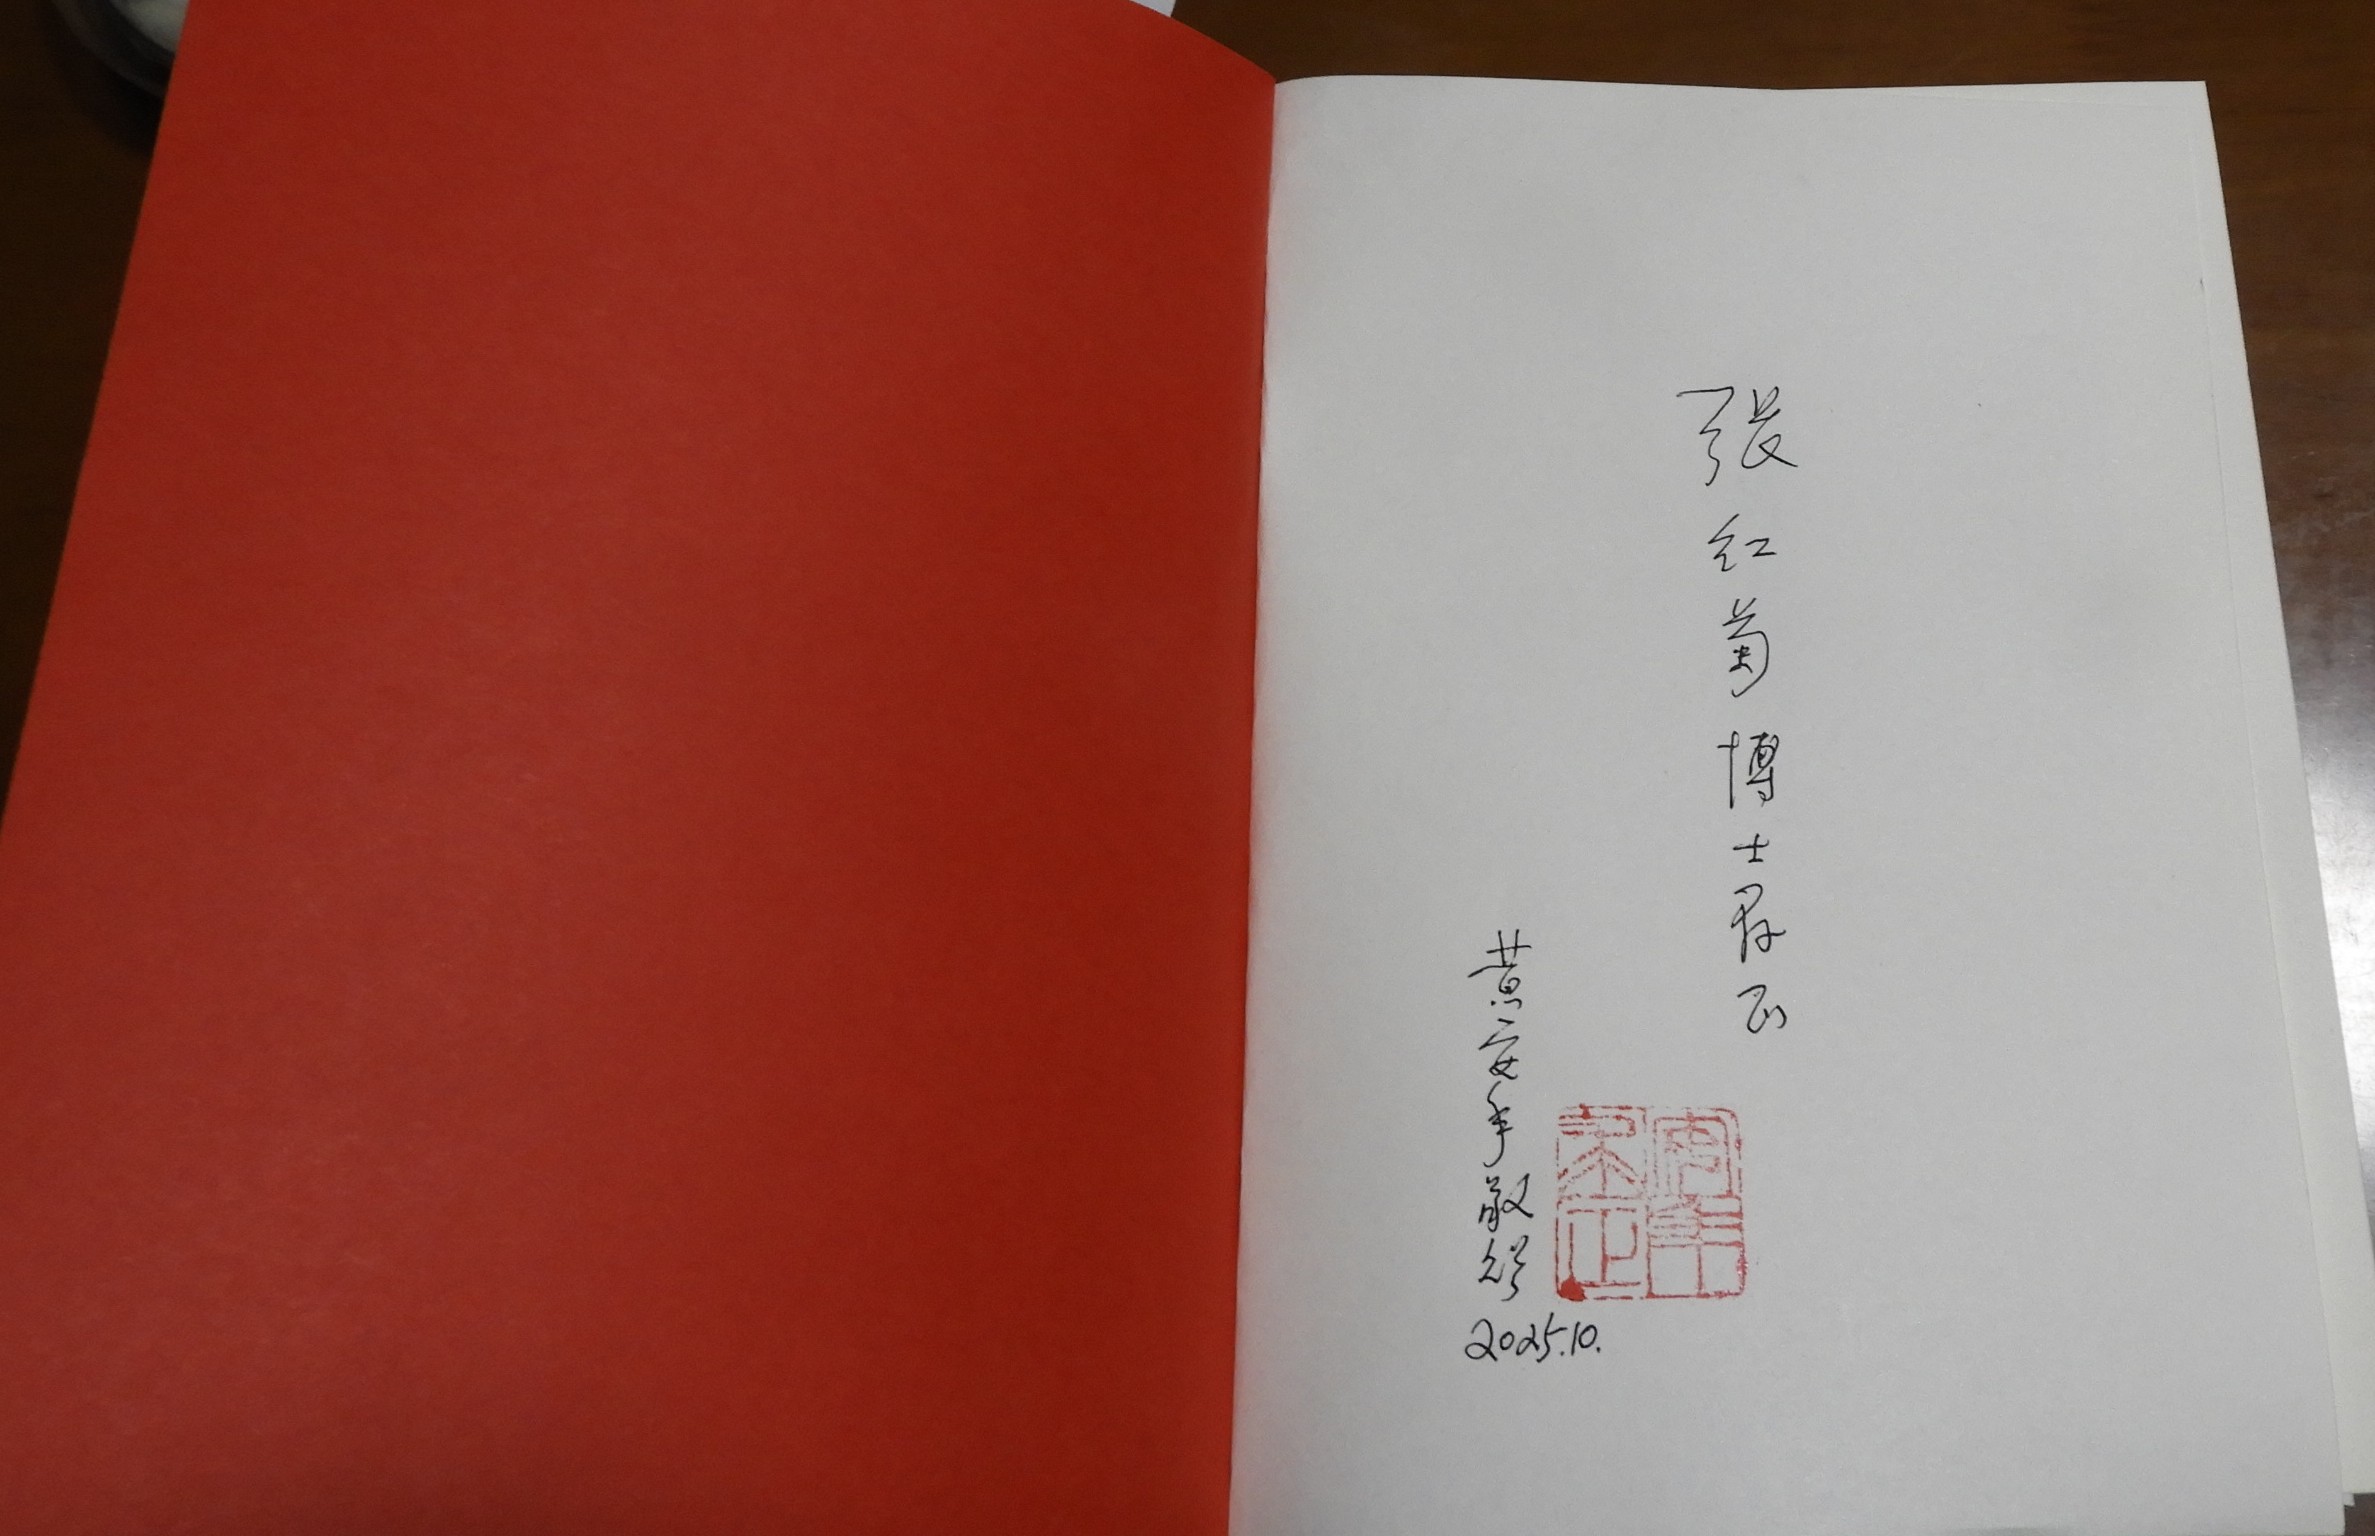 張红菊博士存正
黄安年敬
2025.10.